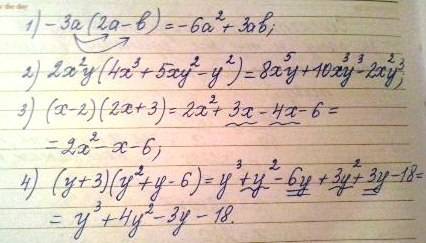 the day
1) -3a(2a-b)=-6a²+3ab;
2) 2x²y(4x³+5xy²-y²)=8x⁵y+10x³y³-2x²y³;
3) (x-2)(2x+3)=2x²+3x-4x-6=
=2x²-x-6;
4) (y+3)(y²+y-6)=y³+y²-6y+3y²+3y-18=
=y³+4y²-3y-18.